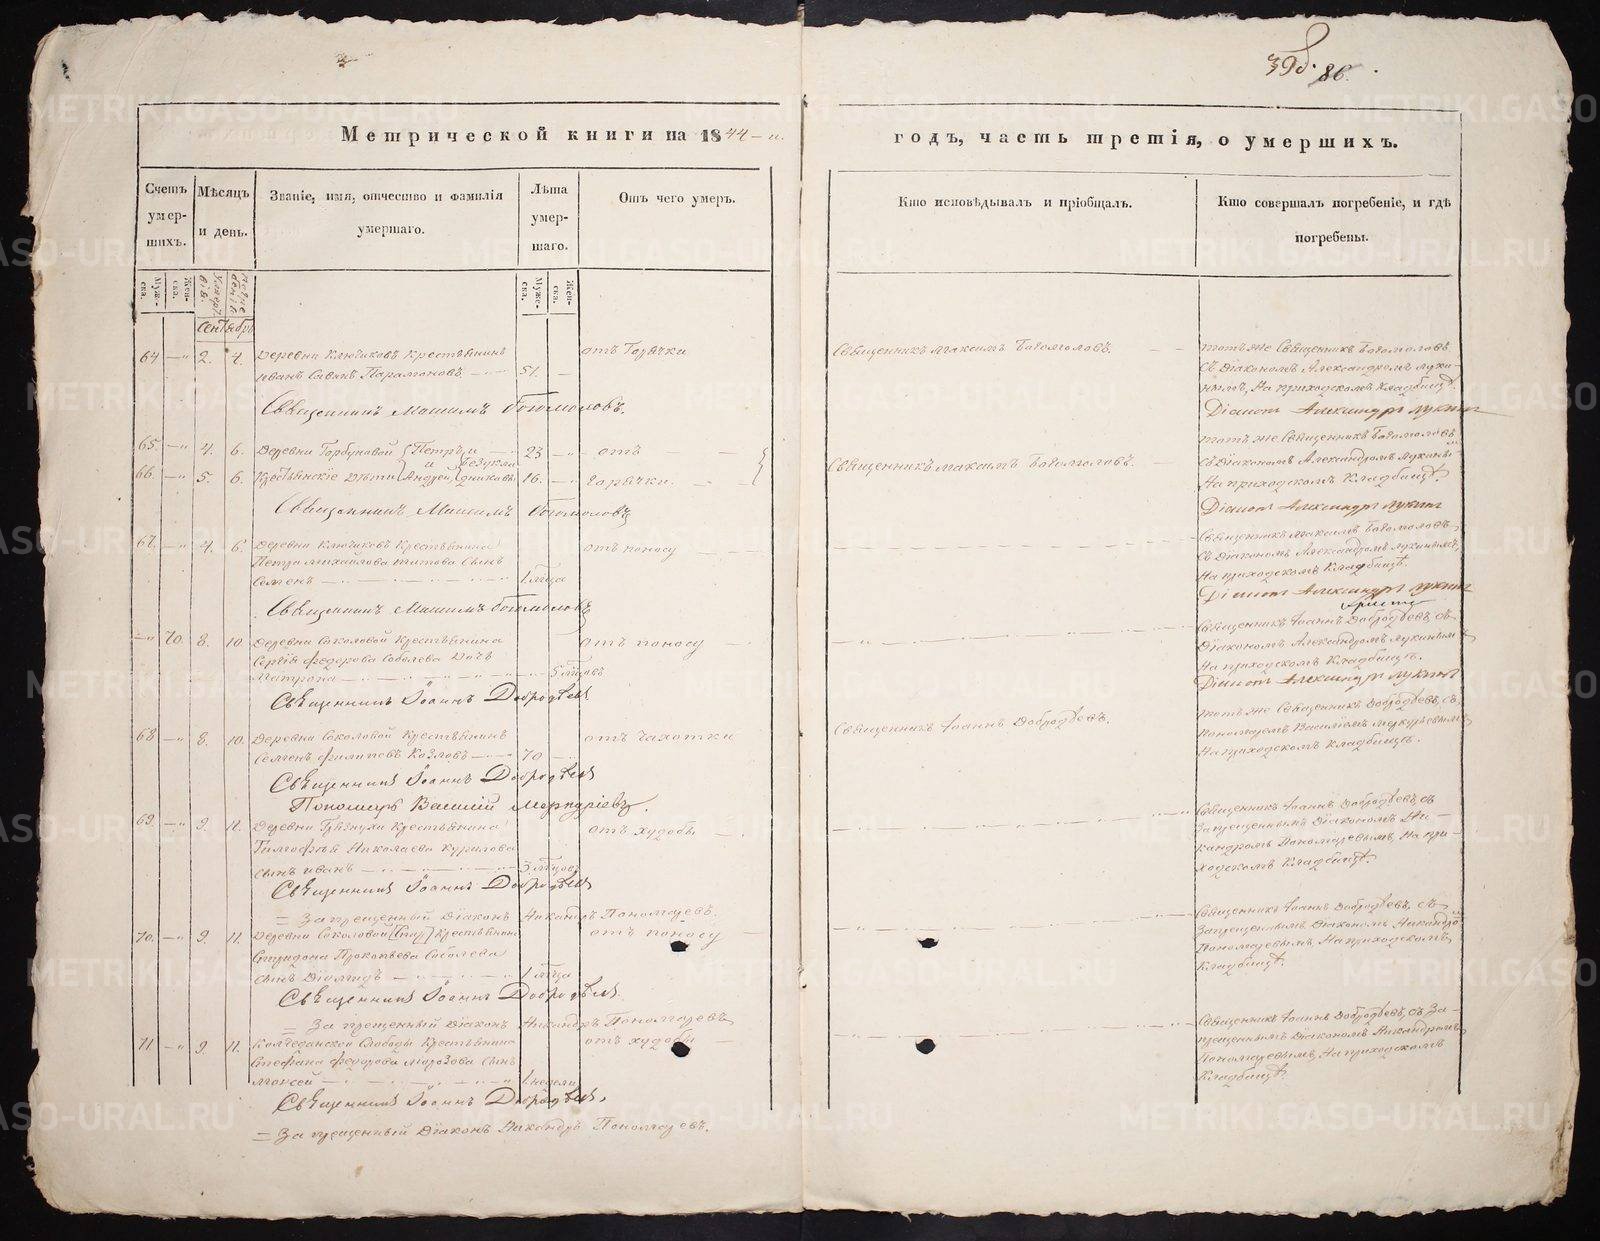 39б. 86.
Метрической книги на 1844-й
годъ, часть третія, о умершихъ.
Счетъ умер-шихъ.
Мѣсяцъ и день.
Званіе, имя, отчество и фамилія умершаго.
Лѣта умер-шаго.
Отъ чего умеръ.
Кто исповѣдывалъ и пріобщалъ.
Кто совершалъ погребеніе, и гдѣ погребены.
Муже-ска.
Жен-ска.
Муже-ска.
Жен-ска.
Сентябрь
64 2. 4. Деревни Ключиковъ Крестьянинъ отъ Горячки Священникъ Максимъ Богомоловъ. тотъ же Священникъ Богомоловъ
Иванъ Савинъ Парамоновъ 51. съ Діакономъ Александромъ Луки-
нымъ, на приходскомъ Кладбищѣ.
Священникъ Максимъ Богомоловъ. Діаконъ Александръ Лукинъ
65. 4. 6. Деревни Горбуновой Петръ и 23 отъ тотъ же Священникъ Богомоловъ
66. 5. 6. Крестьянскіе дѣти Андрей 16. Горячки. Священникъ Максимъ Богомоловъ. съ Діакономъ Александромъ Лукины-
на приходскомъ Кладбищѣ.
Священникъ Максимъ Богомоловъ Діаконъ Александръ Лукинъ
67. 4. 6. Деревни Ключиковъ Крестьянина отъ поносу Священникъ Максимъ Богомоловъ
Петра Михайлова Титова сынъ съ Діакономъ Александромъ Лукинымъ,
Семенъ 1 мѣца на приходскомъ Кладбищѣ.
Священникъ Максимъ Богомоловъ Діаконъ Александръ Лукинъ
70. 8. 10. Деревни Соколовой Крестьянина отъ поносу Священникъ Іоаннъ Добродѣевъ съ
Сергія Федорова Соболева дочь Діакономъ Александромъ Лукинымъ
Матрона 5 мѣцовъ на приходскомъ Кладбищѣ.
Священникъ Іоаннъ Добродѣевъ Діаконъ Александръ Лукинъ
68 8. 10. Деревни Соколовой Крестьянинъ отъ чахотки Священникъ Іоаннъ Добродѣевъ. тотъ же Священникъ Добродѣевъ, съ
Семенъ Филиповъ Козловъ 70 Пономаремъ Василіемъ Меркурьевымъ
на приходскомъ Кладбищѣ.
Священникъ Іоаннъ Добродѣевъ
Пономарь Василій Меркуріевъ.
69. 9. 11. Деревни Грязнухи Крестьянина отъ худобы Священникъ Іоаннъ Добродѣевъ, съ
Тимофѣя Николаева Курилова запрещеннымъ Діакономъ Ни-
сынъ Иванъ 3 мѣцовъ кандромъ Пономаревымъ, на при-
ходскомъ Кладбищѣ.
Священникъ Іоаннъ Добродѣевъ
Запрещенный Діаконъ Никандръ Пономаревъ.
70. 9. 11. Деревни Соколовой Крестьянина отъ поносу Священникъ Іоаннъ Добродѣевъ, съ
Спиридона Прокопьева Соболева запрещеннымъ Діакономъ Никандро-
сынъ Діомидъ 1 мѣца Пономаревымъ, на приходскомъ
Кладбищѣ.
Священникъ Іоаннъ Добродѣевъ.
Запрещенный Діаконъ Никандръ Пономаревъ
71 9. 11. Колчеданской Слободы Крестьянина отъ худобы Священникъ Іоаннъ Добродѣевъ, съ За-
Стефана Федорова Морозова сынъ прещеннымъ Діакономъ Никандромъ
Моисей 1 недели Пономаревымъ, на приходскомъ
Кладбищѣ.
Священникъ Іоаннъ Добродѣевъ.
Запрещенный Діаконъ Никандръ Пономаревъ.
METRIKI.GASO-URAL.RU